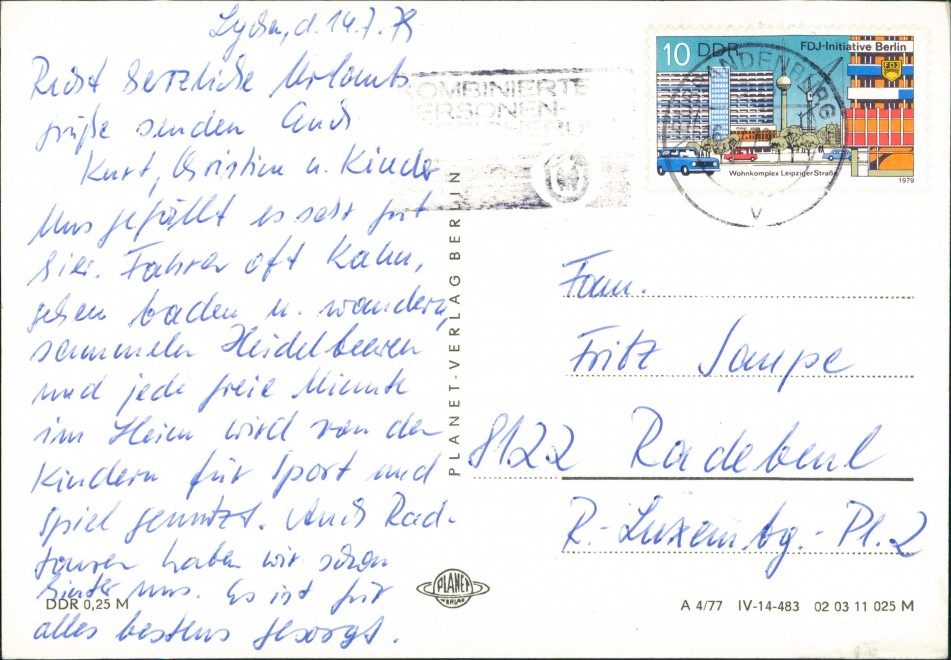 Lychen, d. 14.7.79
Recht herzliche Urlaubs
grüße senden Euch
Kurt, Christian u. Kinder
Uns gefällt es sehr gut
hier. Fahren oft Kahn,
gehen baden u. wandern,
sammeln Heidelbeeren
und jede freie Minute
im Heim wird von den
Kindern für Sport und
Spiel genutzt. Auch Rad-
touren haben wir schon
hinter uns. Es ist für
alles bestens gesorgt.
DDR 0,25 M
KOMBINIERTE
PERSONEN-
PLANET-VERLAG BERLIN
PLANET
VERLAG
10 DDR FDJ-Initiative Berlin
FDJ
Wohnkomplex Leipziger Straße
1979
BRANDENBURG
v
Fam.
Fritz Sampe
8122 Radebeul
R.-Luxembg.-Pl. 2
A 4/77 IV-14-483 02 03 11 025 M